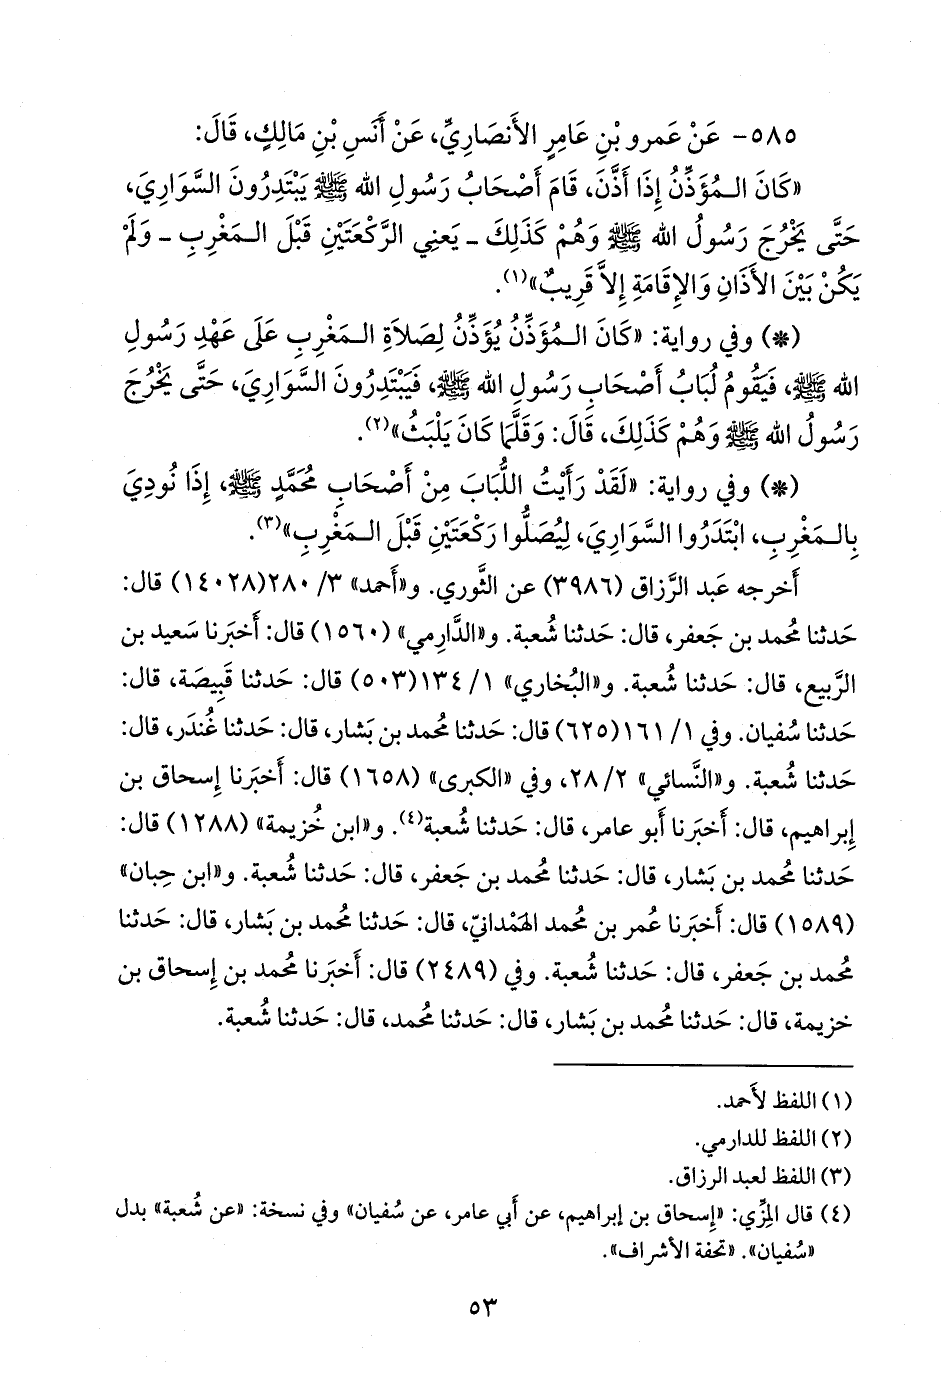 ٥٨٥- عَنْ عَمرِو بْنِ عَامِرٍ الأَنصَارِيِّ، عَنْ أَنَسِ بْنِ مَالِكٍ، قَالَ:
«كَانَ الـمُؤَذِّنُ إِذَا أَذَّنَ، قَامَ أَصْحَابُ رَسُولِ الله ﷺ يَبْتَدِرُونَ السَّوَارِيَ،
حَتَّى يَخْرُجَ رَسُولُ الله ﷺ وَهُمْ كَذَلِكَ ـ يَعنِي الرَّكْعَتَيْنِ قَبْلَ الـمَغْرِبِ ـ وَلَمْ
يَكُنْ بَيْنَ الأَذَانِ وَالإِقَامَةِ إِلاَّ قَرِيبٌ»(١).
(*) وفي رواية: «كَانَ الـمُؤَذِّنُ يُؤَذِّنُ لِصَلاَةِ الـمَغْرِبِ عَلَى عَهْدِ رَسُولِ
الله ﷺ، فَيَقُومُ لُبَابُ أَصْحَابِ رَسُولِ الله ﷺ، فَيَبْتَدِرُونَ السَّوَارِيَ، حَتَّى يَخْرُجَ
رَسُولُ الله ﷺ وَهُمْ كَذَلِكَ، قَالَ: وَقَلَّمَا كَانَ يَلْبَثُ»(٢).
(*) وفي رواية: «لَقَدْ رَأَيْتُ اللُّبَابَ مِنْ أَصْحَابِ مُحَمَّدٍ ﷺ، إِذَا نُودِيَ
بِالـمَغْرِبِ، ابْتَدَرُوا السَّوَارِيَ، لِيُصَلُّوا رَكْعَتَيْنِ قَبْلَ الـمَغْرِبِ»(٣).
أَخرجه عَبد الرَّزاق (٣٩٨٦) عن الثَّوري. و«أَحمد» ٣/ ٢٨٠(١٤٠٢٨) قال:
حَدثنا مُحمد بن جَعفر، قال: حَدثنا شُعبة. و«الدَّارِمي» (١٥٦٠) قال: أَخبَرنا سَعيد بن
الرَّبيع، قال: حَدثنا شُعبة. و«البُخاري» ١/ ١٣٤(٥٠٣) قال: حَدثنا قَبِيصَة، قال:
حَدثنا سُفيان. وفي ١/ ١٦١(٦٢٥) قال: حَدثنا مُحمد بن بَشار، قال: حَدثنا غُندَر، قال:
حَدثنا شُعبة. و«النَّسائي» ٢/ ٢٨، وفي «الكبرى» (١٦٥٨) قال: أَخبَرنا إِسحاق بن
إِبراهيم، قال: أَخبَرنا أَبو عامر، قال: حَدثنا شُعبة(٤). و«ابن خُزيمة» (١٢٨٨) قال:
حَدثنا مُحمد بن بَشار، قال: حَدثنا مُحمد بن جَعفر، قال: حَدثنا شُعبة. و«ابن حِبان»
(١٥٨٩) قال: أَخبَرنا عُمر بن مُحمد الهَمْدانيّ، قال: حَدثنا مُحمد بن بَشار، قال: حَدثنا
مُحمد بن جَعفر، قال: حَدثنا شُعبة. وفي (٢٤٨٩) قال: أَخبَرنا مُحمد بن إِسحاق بن
خزيمة، قال: حَدثنا مُحمد بن بَشار، قال: حَدثنا مُحمد، قال: حَدثنا شُعبة.
(١) اللفظ لأَحمد.
(٢) اللفظ للدارمي.
(٣) اللفظ لعبد الرزاق.
(٤) قال المِزِّي: «إِسحاق بن إبراهيم، عن أَبي عامر، عن سُفيان» وفي نسخة: «عن شُعبة» بدل
«سُفيان». «تحفة الأشراف».
٥٣